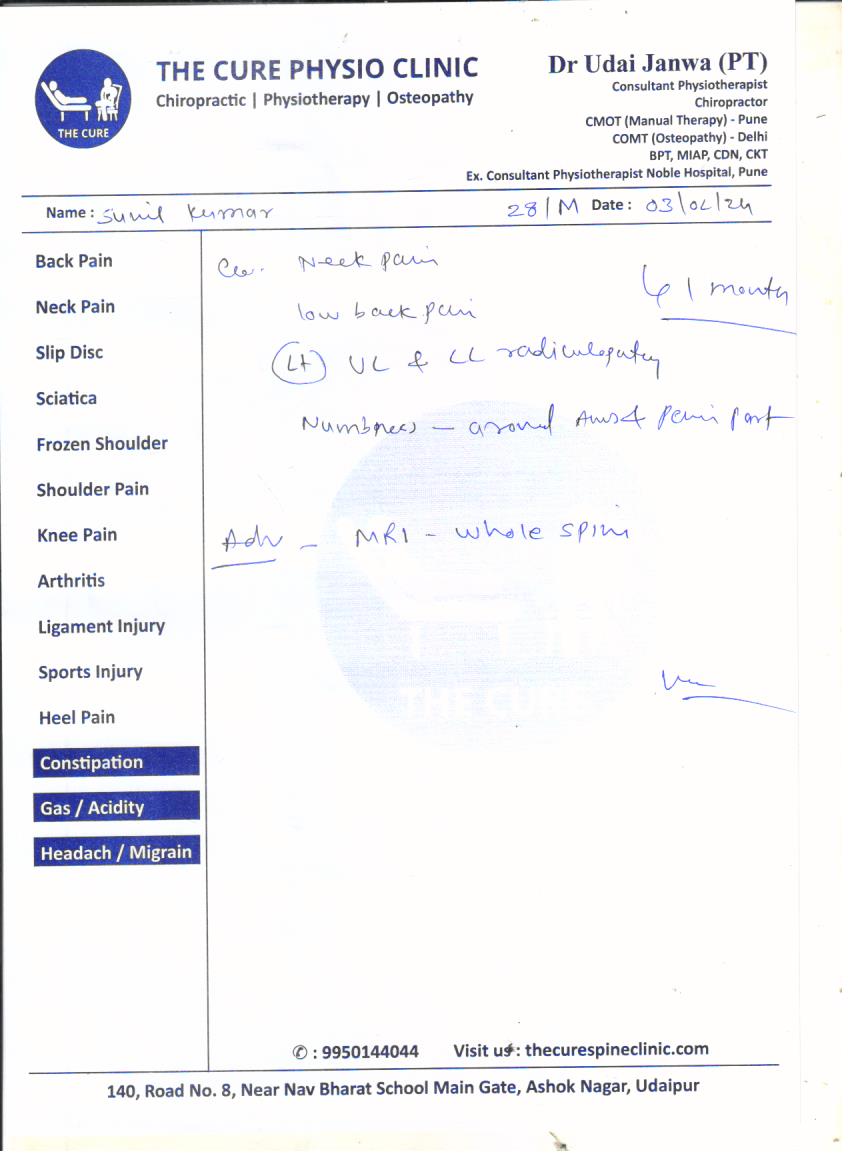 THE CURE PHYSIO CLINIC
Chiropractic | Physiotherapy | Osteopathy
THE CURE
Dr Udai Janwa (PT)
Consultant Physiotherapist
Chiropractor
CMOT (Manual Therapy) - Pune
COMT (Osteopathy) - Delhi
BPT, MIAP, CDN, CKT
Ex. Consultant Physiotherapist Noble Hospital, Pune
Name : Sunil Kumar 28/M Date : 03/02/24
Back Pain
Neck Pain
Slip Disc
Sciatica
Frozen Shoulder
Shoulder Pain
Knee Pain
Arthritis
Ligament Injury
Sports Injury
Heel Pain
Constipation
Gas / Acidity
Headach / Migrain
Neck pain
1 month
low back pain
(Lt) UL & LL radiculopathy
Numbness - around pain part
Adv - MRI - whole spine
THE CURE
✆ : 9950144044 Visit us : thecurespineclinic.com
140, Road No. 8, Near Nav Bharat School Main Gate, Ashok Nagar, Udaipur